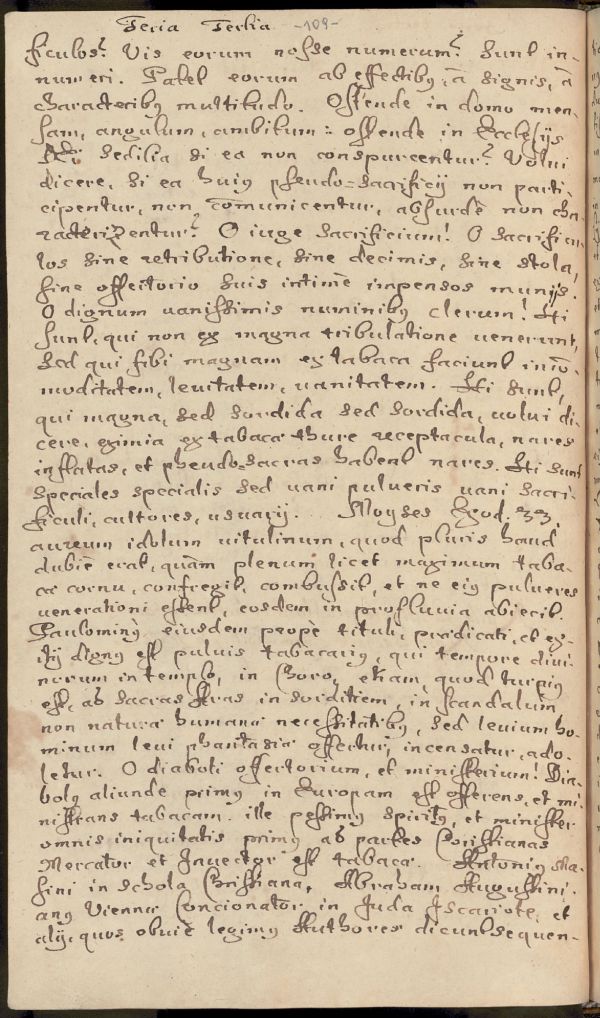 Feria Tertia -109-
ficulos? Vis eorum nosse numerum? Sunt in-
numeri. Patet eorum ab effectiby, à signis, à
characteriby multitudo. Ostende in domo men-
sam, angulum, ambitum: ostende in Ecclesijs
sedilia si ea non conspurcentur? Volui
dicere, si ea huiy pseudo-sacrificij non parti-
cipentur, non comunicentur, absurdè non cha-
racterizentur? O iuge sacrificium! O sacrificu-
los sine retributione, sine decimis, sine stola,
sine offertorio suis intimè impensos munijs!
O dignum vanissimis numiniby clerum! Hi
sunt, qui non ex magna tribulatione venerunt,
sed qui sibi magnam ex tabaca faciunt incō-
moditatem, levitatem, vanitatem. Hi sunt,
qui magna, sed sordida sed sordida, volui di-
cere, eximia ex tabaca thure receptacula, nares
inflatas, et pheudo-sacras habent nares. Hi sunt
speciales specialis sed vani pulveris vani sacri-
ficuli, cultores, usuarij. Moyses Exod. 32.
aureum idolum vitulinum, quod pluris haud
dubiè erat, quàm plenum licet maximum taba-
ca cornu, confregit, combussit, et ne eiy pulveres
venerationi essent, eosdem in profluvia abiecit.
Pauloming eiusdem propè tituli, prædicati, et ex-
itij digny est pulvis tabacariy, qui tempore divi-
norum in templo, in Choro, etiam, quod turpiy
est, ad sacras Aras in sorditiem, in scandalum
non naturæ humanæ necessitatiby, sed levium ho-
minum levi phantasiæ offertur, incensatur, ado-
letur. O diaboli offertorium, et ministerium! Dia-
boly aliunde primy in Europam est offerens, et mi-
nistrans tabacam. ille pessimy spirity, et minister
omnis iniquitatis primy ad partes Christianas
Mercator et Invector est tabacæ. Antoniy Ma-
sini in schola Christiana, Abraham Augustini-
any Viennæ Concionator in Juda Iscariote, et
alij, quos obviè legimy Authores dicunt sequen-